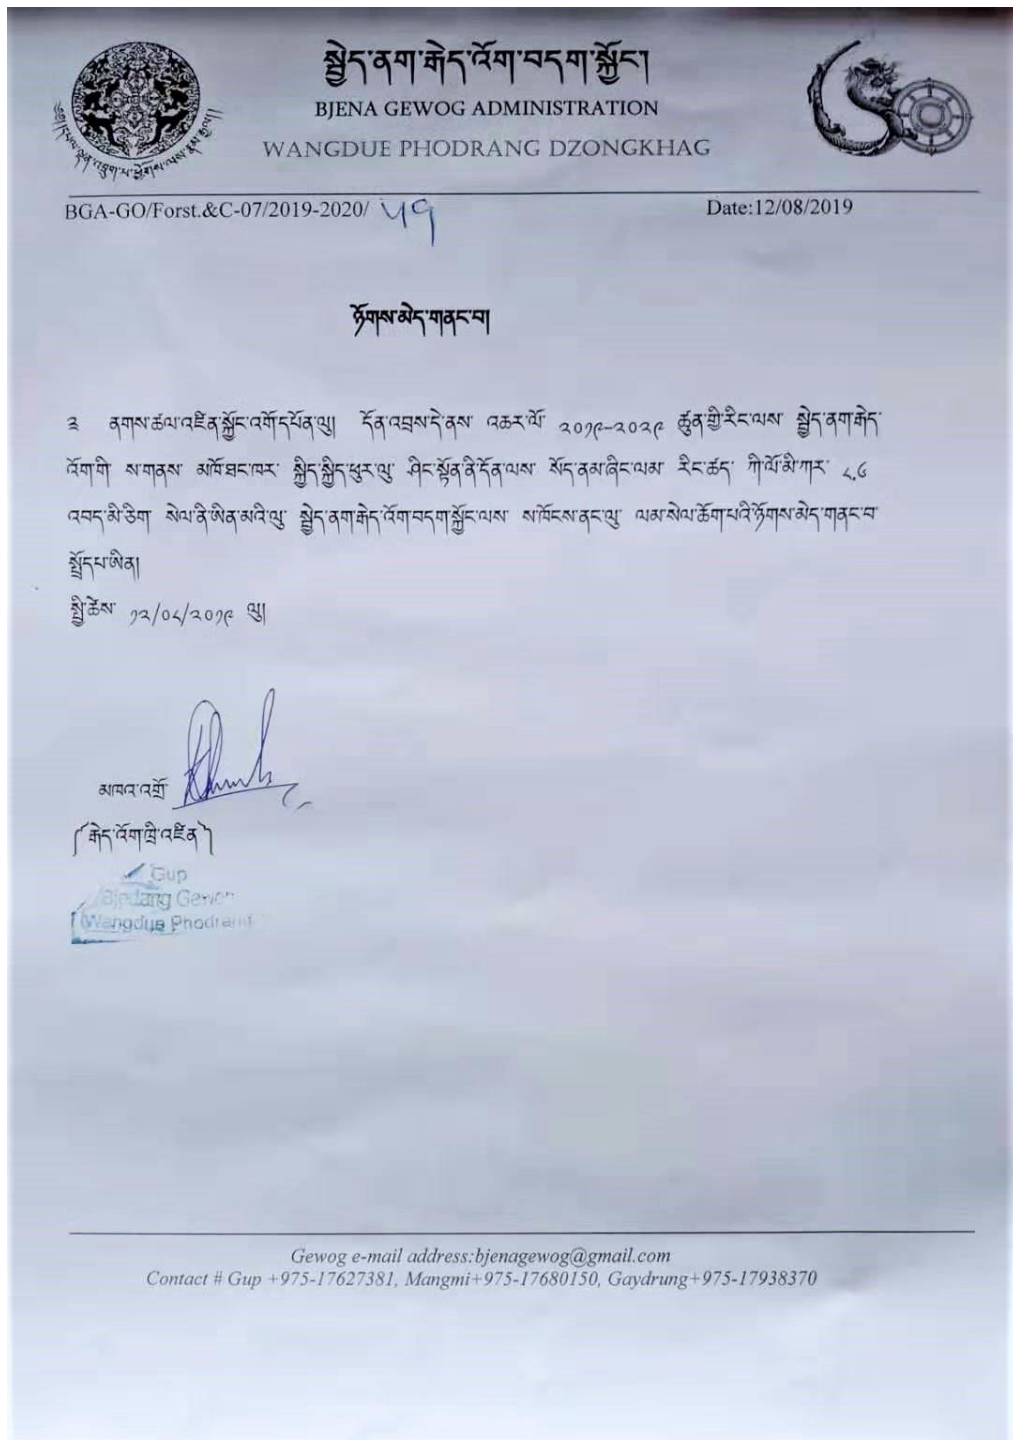 སྦྱེད་ནག་རྒེད་འོག་བདག་སྐྱོང་།
BJENA GEWOG ADMINISTRATION
WANGDUE PHODRANG DZONGKHAG
BGA-GO/Forst.&C-07/2019-2020/
Date:12/08/2019
ཉོགས་མེད་གནང་བ།
༣ ནགས་ཚལ་འཛིན་སྐྱོང་འགོ་དཔོན་ལུ། དོན་འབྲས་དེ་ནས་ འཆར་ལོ་ ༢༠༡༩-༢༠༢༩ ཚུན་གྱི་རིང་ལས་ སྦྱེད་ནག་རྒེད་
འོག་གི་ ས་གནས་ མཁོ་ཐང་ཁར་ སྐྱིད་སྐྱིད་ཕུར་ལུ་ ཤིང་སྟོན་ནི་དོན་ལས་ སོད་ནམ་ཞིང་ལམ་ རིང་ཚད་ ཀི་ལོ་མི་ཀར་ ༨.༦
འབད་མི་ཅིག་ སེལ་ནི་ཨིན་མའི་ལུ་ སྦྱེད་ནག་རྒེད་འོག་བདག་སྐྱོང་ལས་ ས་ཁོངས་ནང་ལུ་ ལམ་སེལ་ཆོག་པའི་ཉོགས་མེད་གནང་བ་
སྤྲོདཔ་ཨིན།
སྤྱི་ཚེས་ ༡༢/༠༨/༢༠༡༩ ལུ།
མཁའ་འགྲོ་
༼རྒེད་འོག་ཁྲི་འཛིན༽
Gup
Wangdue Phodrang
Gewog e-mail address:bjenagewog@gmail.com
Contact # Gup +975-17627381, Mangmi+975-17680150, Gaydrung+975-17938370